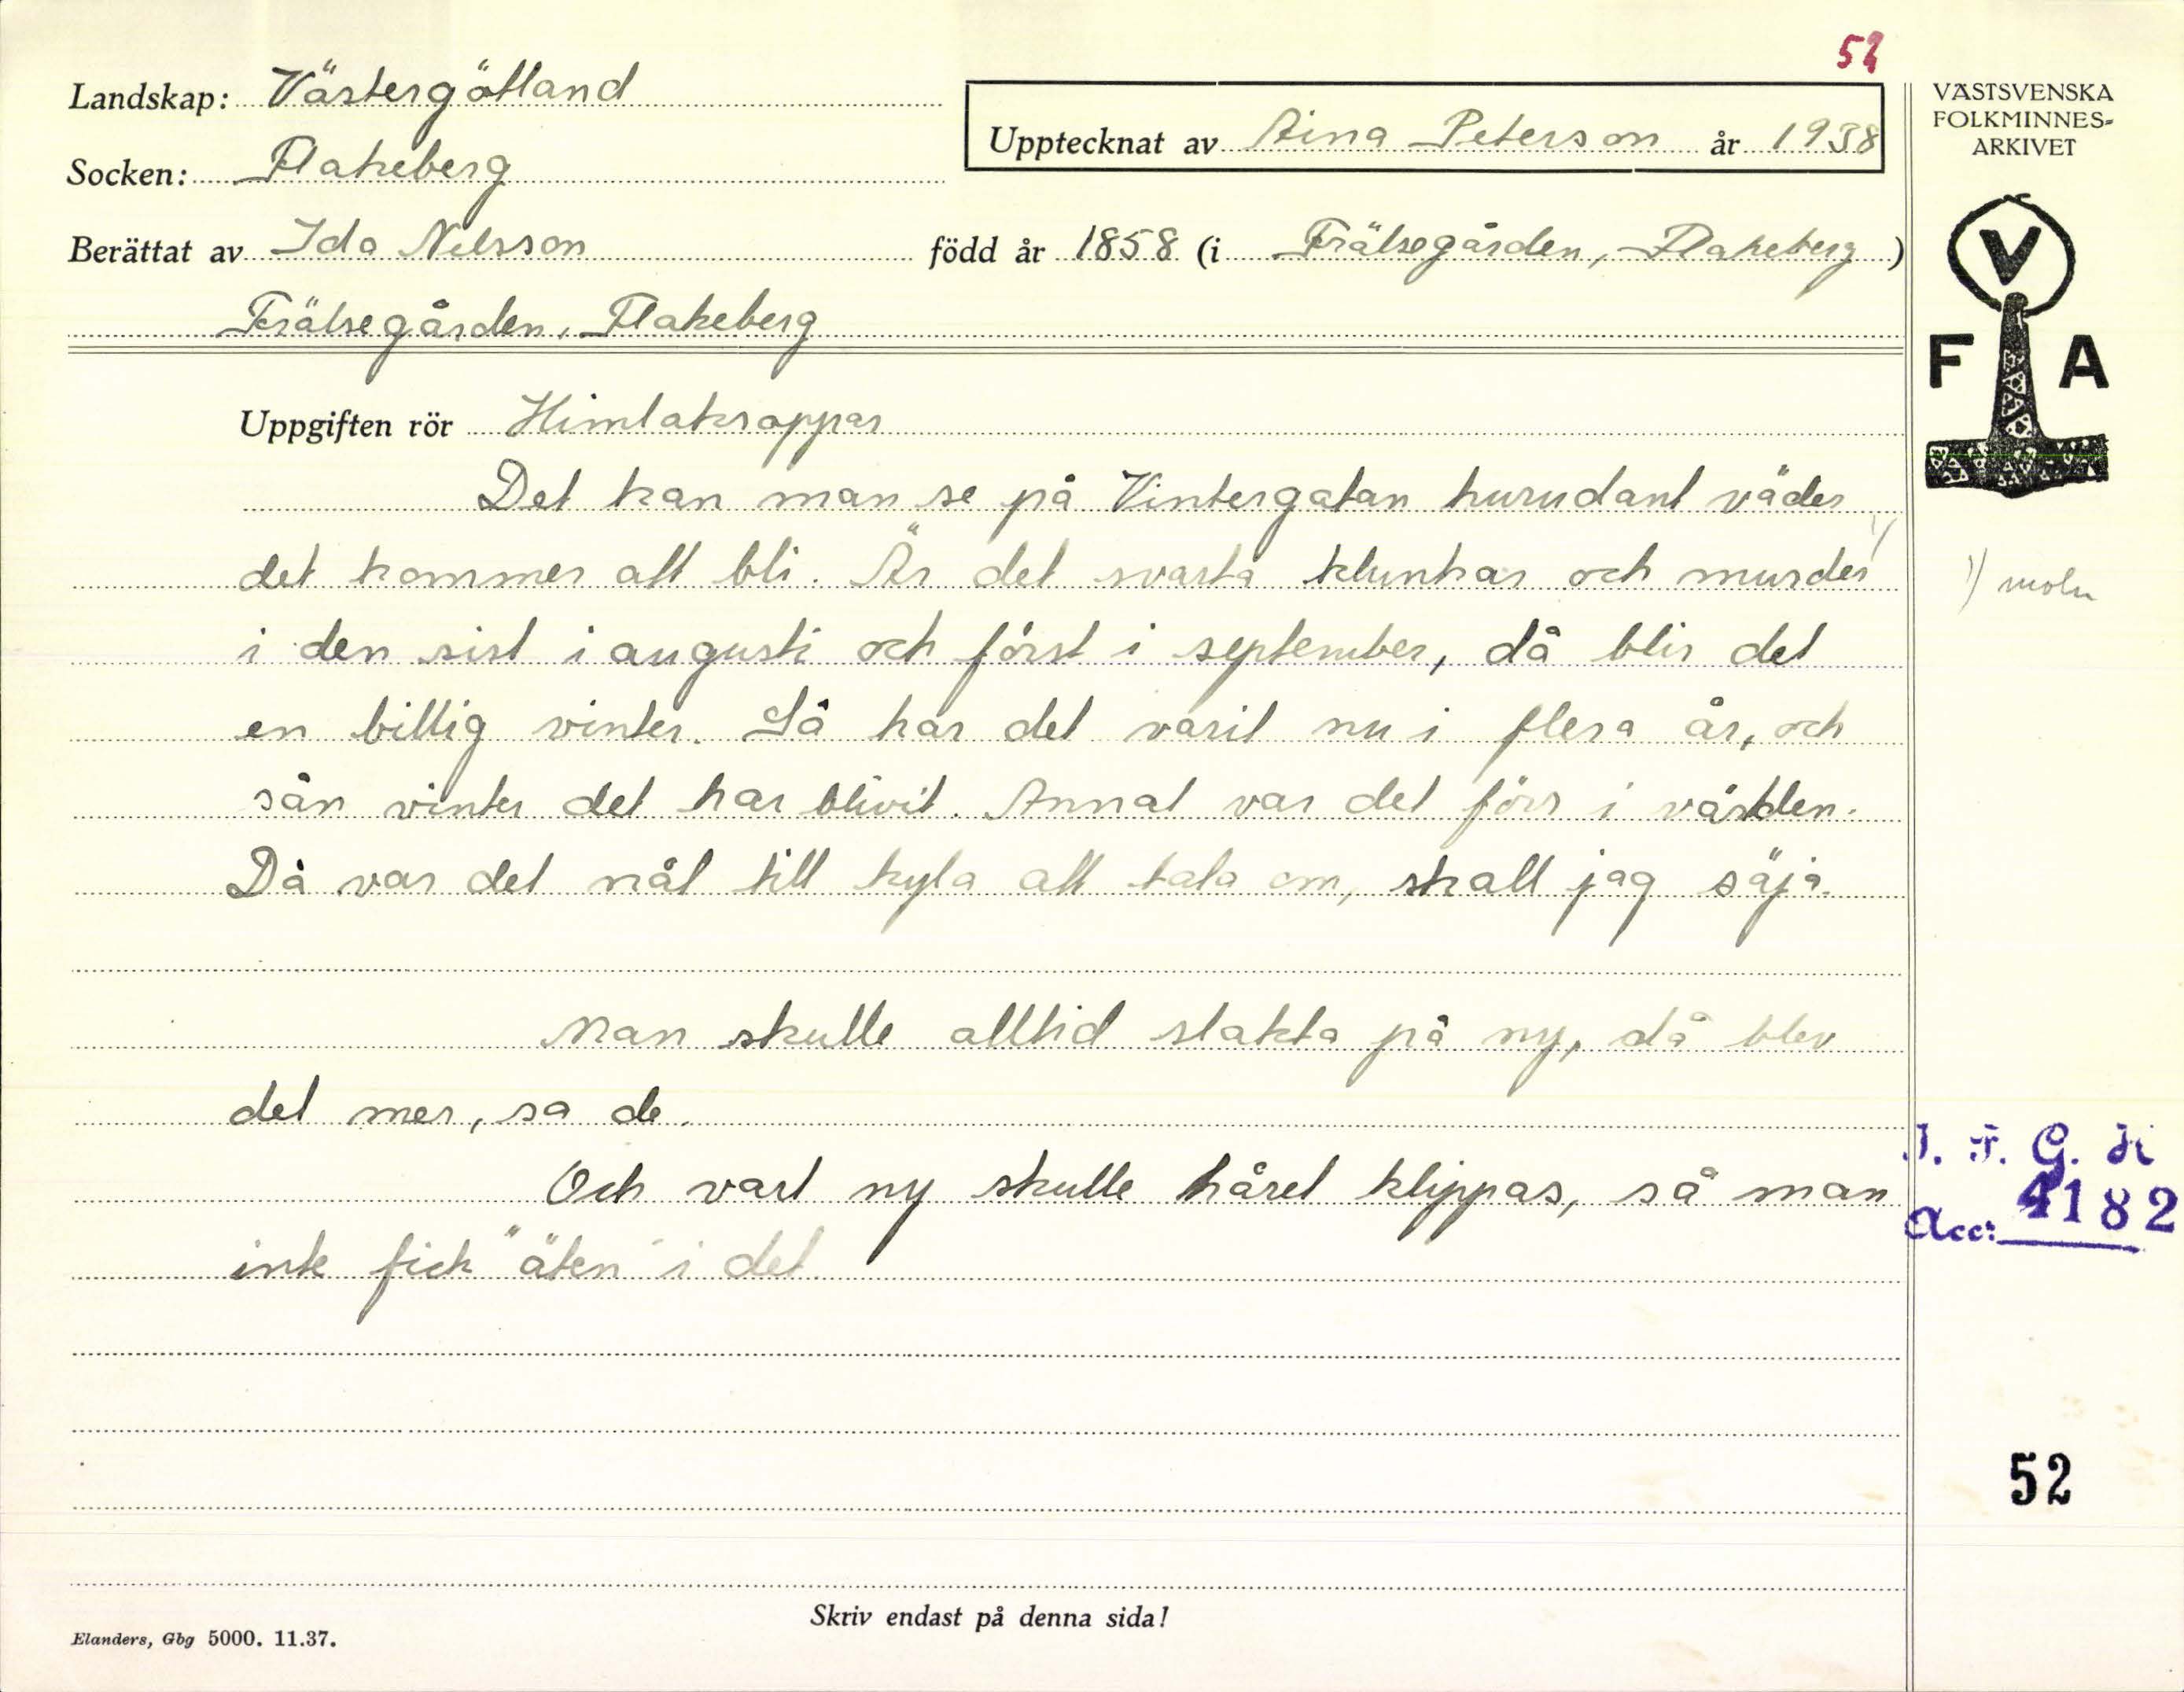 52
Landskap: Västergötland
Upptecknat av Aina Peterson år 1938
Socken: Flakeberg
Berättat av Ida Nilsson född år 1858 (i Frälsegården, Flakeberg)
Frälsegården, Flakeberg
VÄSTSVENSKA
FOLKMINNES-
ARKIVET
V
F A
Uppgiften rör Himlakroppar
Det kan man se på Vintergatan hurudant väder
det kommer att bli. Är det svarta klunkar och murder 1)
1) moln
i den sist i augusti och först i september, då blir det
en billig vinter. Så har det varit nu i flera år, och
sån vinter det har blivit. Annat var det förr i världen.
Då var det nåt till kyla att tala om, skall jag säja.
Man skulle alltid slakta på ny, då blev
det mer, sa de.
Och vart ny skulle håret klippas, så man
inte fick "äten" i det.
I. F. G. H
Acc: 4182
52
Skriv endast på denna sida!
Elanders, Gbg 5000. 11.37.